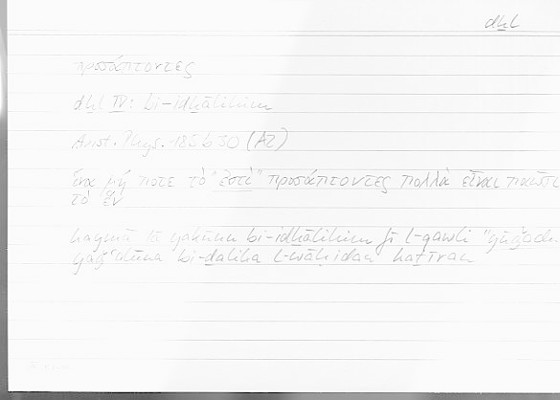 dḫl
προσάπτοντες
dḫl IV: bi-idḫālihim
Arist. Phys. 185 b 30 (A2)
ἵνα μή ποτε τὸ "ἐστὶ" προσάπτοντες πολλὰ εἶναι ποιῶσι
τὸ ἕν
bi-idḫālihim fī l-qawli "yūǧadu"
yaǧʿalūna bi-ḏālika l-wāḥida kaṯīran